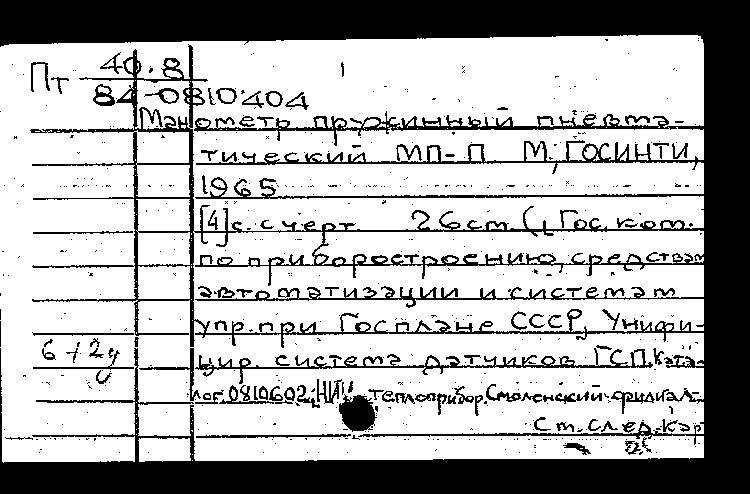 Пт 40.8
84-0810404
Манометр пружинный пневма-
тический МП-П М., ГОСИНТИ,
1965
[4] с. с черт. 26 см. (Гос. ком.
по приборостроению, средствам
автоматизации и системам
упр. при Госплане СССР, Унифи-
6+2у цир. система датчиков ГСП. Ката-
лог. 0810602. НИИ теплоприбор. Смоленский филиал.
См. след. кар